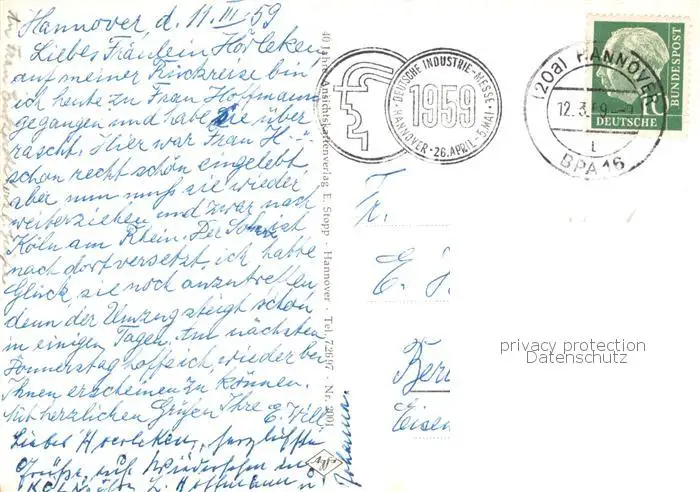 Hannover, d. 11. III. 59
Liebes Fräulein Hörleken
auf meiner Rückreise bin
ich heute zu Frau Hoffmann
gegangen und habe sie über
rascht. Hier war Frau H.
schon recht schön eingelebt
aber nun muß sie wieder
weiterziehen und zwar nach
Köln am Rhein. Der Sohn ist
nach dort versetzt, ich hatte
Glück, sie noch anzutreffen,
denn der Umzug steigt schon
in einigen Tagen. Am nächsten
Donnerstag hoffe ich, wieder bei
Ihnen erscheinen zu können.
Mit herzlichen Grüßen Ihre E. Will
Liebes Hoerleken, herzlichste
Grüße, auf Wiedersehen in
KÖLN Hoffmann u
Johanna
40 Jahre Ansichtskartenverlag E. Stopp - Hannover - Tel. 72697 - Nr. 3001
Agfa
DEUTSCHE INDUSTRIE-MESSE
1959
HANNOVER · 26. APRIL - 5. MAI
(20a) HANNOVER
12.3.59
BPA 16
DEUTSCHE
BUNDESPOST
10
Fr.
E. H
Ber
Eisen
privacy protection
Datenschutz